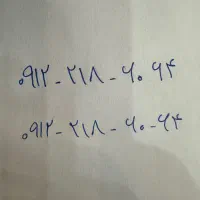 ۰۹۱۲-۲۱۸-۶۰۶۴
۰۹۱۲-۲۱۸-۶۰-۶۴